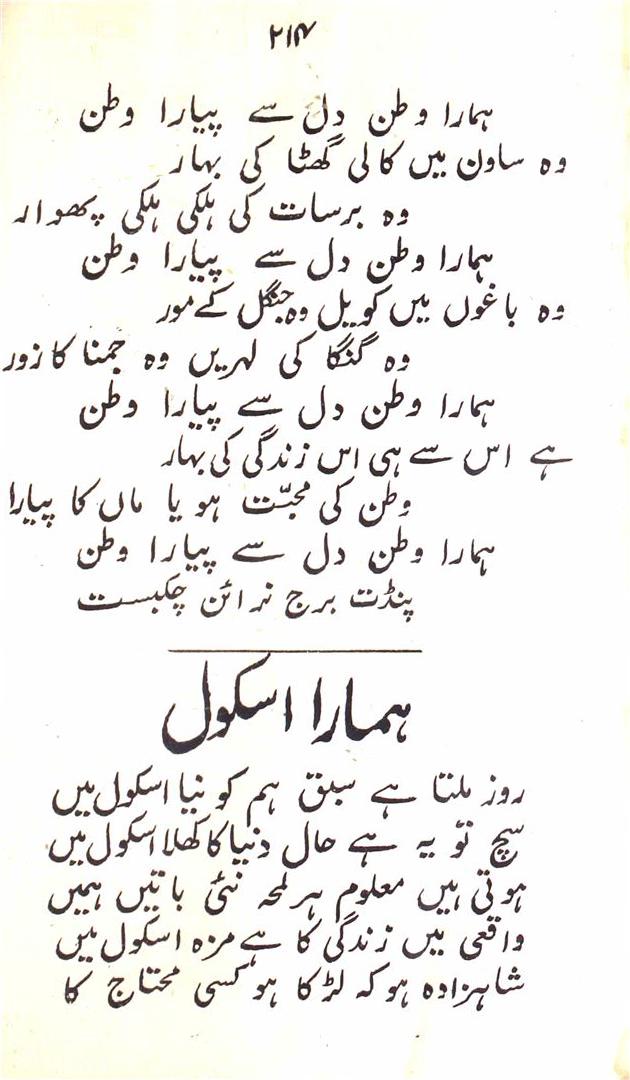 ۲۱۴
ہمارا وطن دل سے پیارا وطن
وہ ساون میں کالی گھٹا کی بہار
وہ برسات کی ہلکی ہلکی پھوار
ہمارا وطن دل سے پیارا وطن
وہ باغوں میں کویل وہ جنگل کے مور
وہ گنگا کی لہریں وہ جمنا کا زور
ہمارا وطن دل سے پیارا وطن
ہے اس سے ہی اس زندگی کی بہار
وطن کی محبّت ہو یا ماں کا پیارا
ہمارا وطن دل سے پیارا وطن
پنڈت برج نرائن چکبست
ہمارا اسکول
روز ملتا ہے سبق ہم کو نیا اسکول میں
سچ تو یہ ہے حال دنیا کا کھلا اسکول میں
ہوتی ہیں معلوم ہر لمحہ نئی باتیں ہمیں
واقعی میں زندگی کا ہے مزہ اسکول میں
شاہزادہ ہو کہ لڑکا ہو کسی محتاج کا